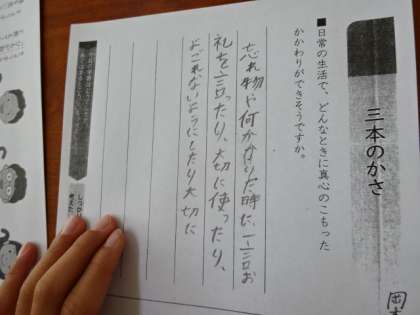 三本のかさ
■日常の生活で、どんなときに真心のこもった
かかわりができそうですか。
忘れ物や何かかりた時に、一言お
礼を言ったり、大切に使ったり、
よごれないようにしたり大切に
岡本